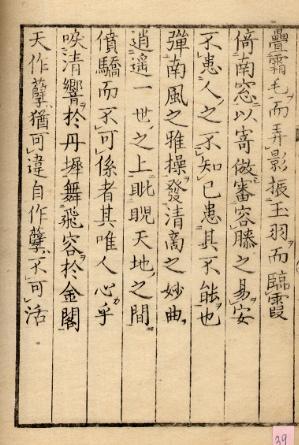 疊霜毛而弄影振玉羽而臨霞
倚南窓以寄傲審容膝之易安
不患人之不知己患其不能也
彈南風之雅操發清商之妙曲
逍遥一世之上睥睨天地之間
僨驕而不可係者其唯人心乎
唳清響於丹墀舞飛容於金閣
天作孽猶可違自作孽不可活
39